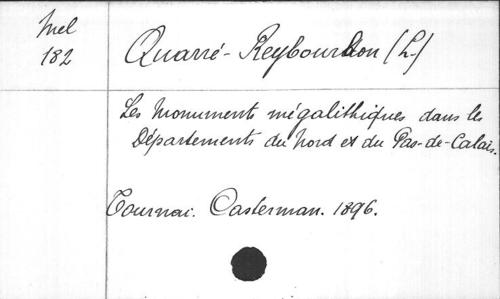 Mel
182
Quarré-Reybourbon (L.)
Les Monuments mégalithiques dans les
Départements du Nord et du Pas-de-Calais.
Tournai. Casterman. 1896.